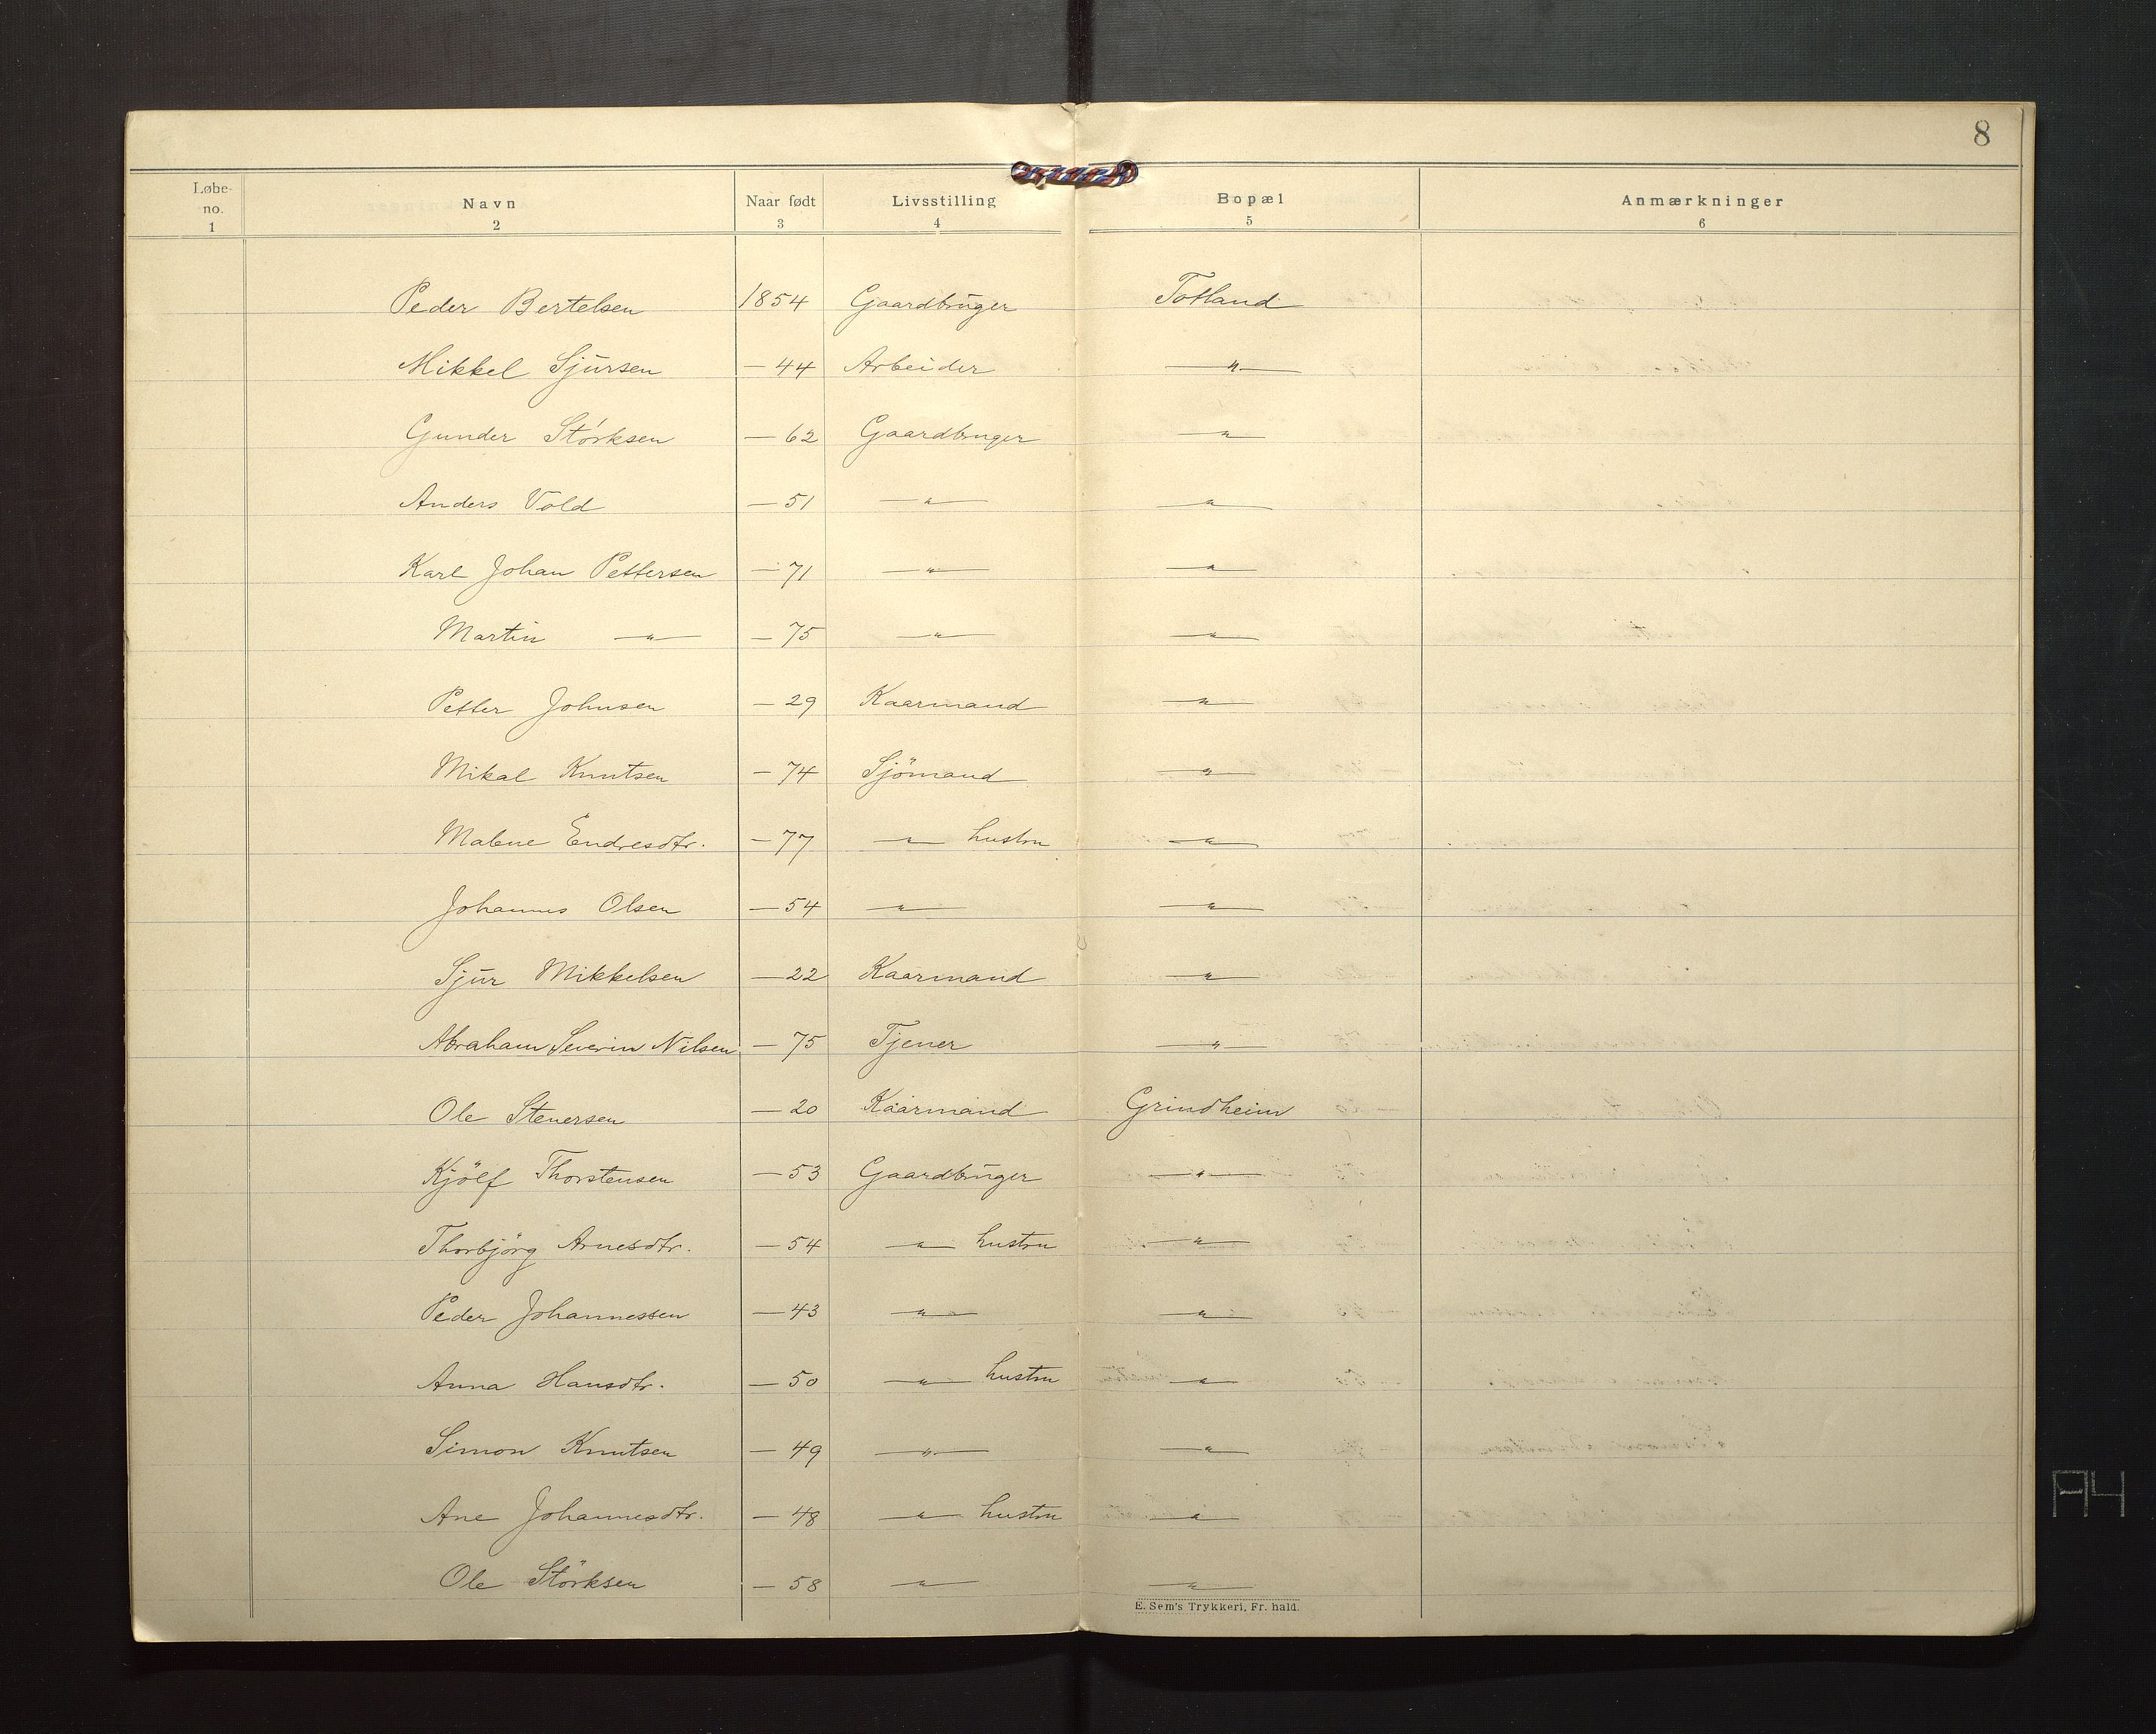 8
Løbe-no. Navn Naar født Livsstilling Bopæl Anmærkninger
1 2 3 4 5 6
Peder Bertelsen 1854 Gaardbruger Totland
Mikkel Sjursen — 44 Arbeider —"—
Gunder Störksen — 62 Gaardbruger —"—
Anders Vold — 51 —"— —"—
Karl Johan Pettersen — 71 —"— —"—
Martin —"— — 75 —"— —"—
Petter Johnsen — 29 Kaarmand —"—
Mikal Knutsen — 74 Sjömand —"—
Malene Endresdtr. — 77 —"— hustru —"—
Johannes Olsen — 54 —"— —"—
Sjur Mikkelsen — 22 Kaarmand —"—
Abraham Severin Nilsen — 75 Tjener —"—
Ole Stenersen — 20 Kaarmand Grindheim
Kjölf Thorstensen — 53 Gaardbruger —"—
Thorbjörg Arnesdtr. — 54 —"— hustru —"—
Peder Johannessen — 43 —"— —"—
Anna Hansdtr. — 50 —"— hustru —"—
Simon Knutsen — 49 —"— —"—
Ane Johannesdtr. — 48 —"— hustru —"—
Ole Störksen — 58 —"— —"—
E. Sem's Trykkeri, Fr. hald.
A4